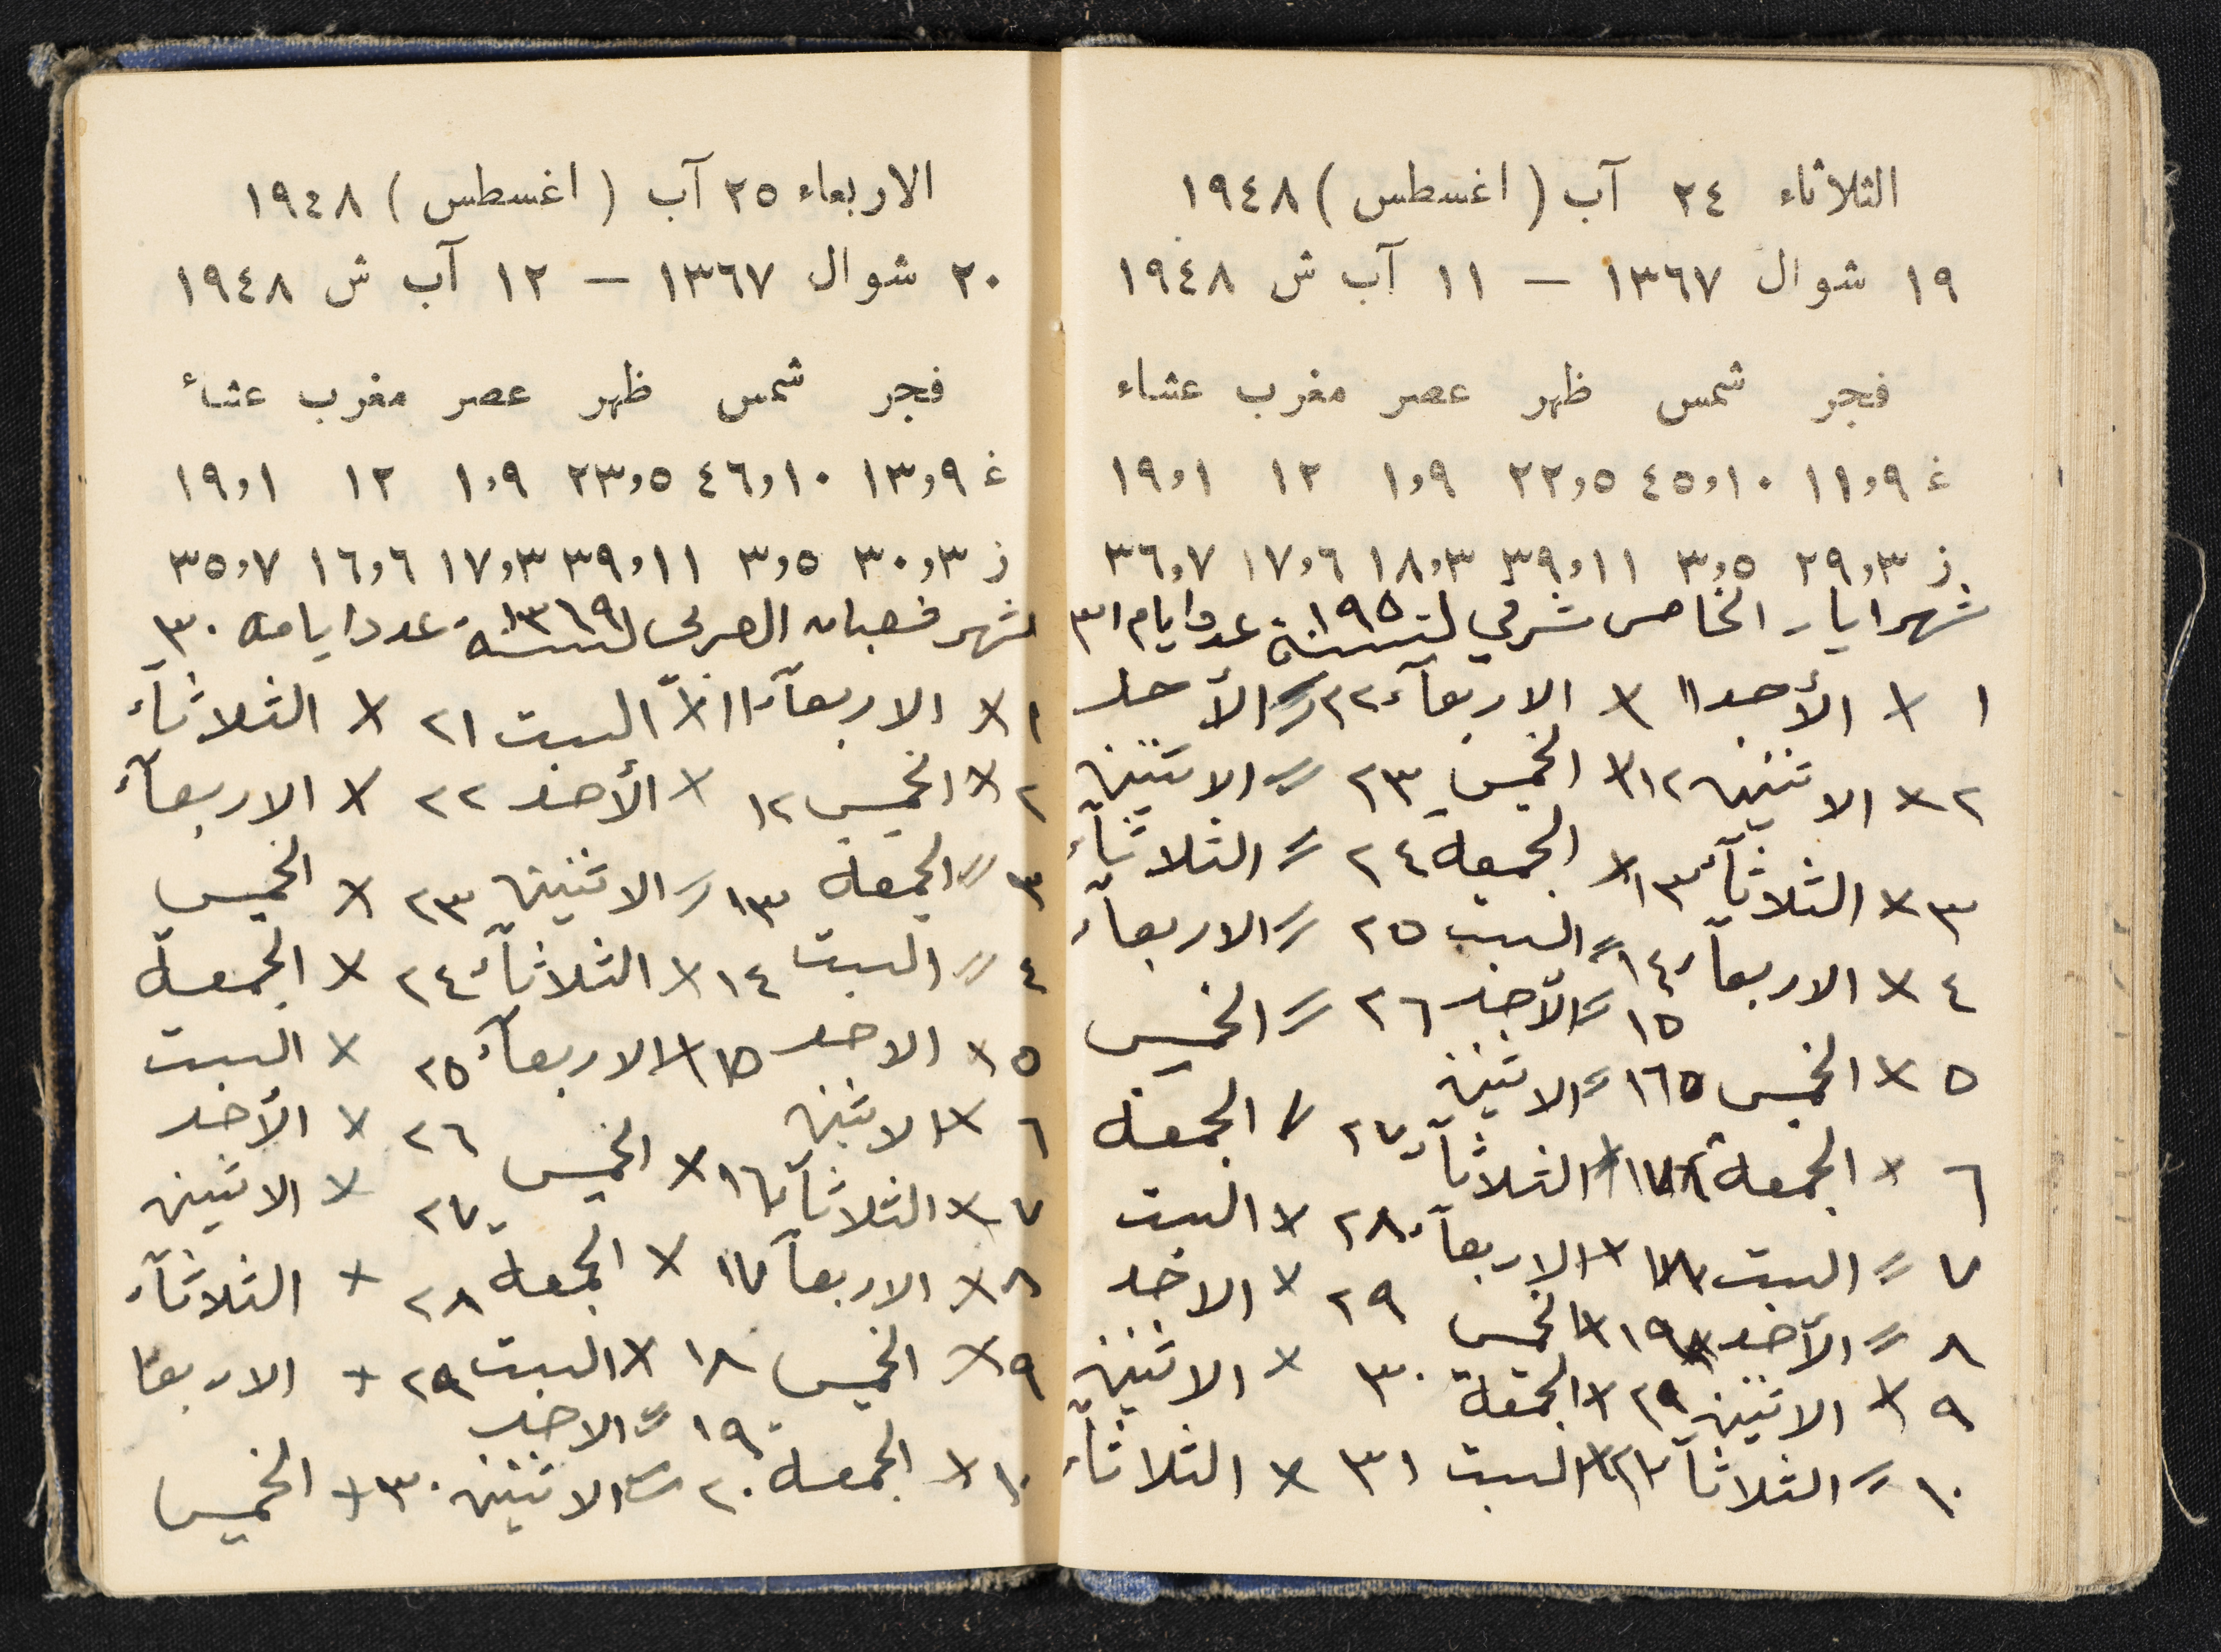 الثلاثاء ٢٤ آب (اغسطس) ١٩٤٨
١٩ شوال ١٣٦٧ — ١١ آب ش ١٩٤٨
فجر شمس ظهر عصر مغرب عشاء
غ ١١٫٩ ٤٥٫١٠ ٢٢٫٥ ١٫٩ ١٢ ١٩٫١
ز ٢٩٫٣ ٣٫٥ ٣٩٫١١ ١٨٫٣ ١٧٫٦ ٣٦٫٧
شهر ايار الخامس شرقي لسنة ١٩٥ عدد ايام ٣١
١ × الأحد ١١ × الاربعآء ٢٢ // الأحد
٢ × الاثنين ١٢ × الخميس ٢٣ // الاثنين
٣ × الثلاثآء ١٣ × الجمعة ٢٤ // الثلاثآء
٤ × الاربعآء ١٤ // السبت ٢٥ // الاربعآء
٥ × الخميس ١٥ // الأحد ٢٦ // الخميس
٦ × الجمعة ١٦ // الاثنين ٢٧ // الجمعة
٧ // السبت ١٧ × الثلاثآء ٢٨ × السبت
٨ // الأحد ١٨ × الاربعآء ٢٩ × الاحد
٩ × الاثنين ١٩ × الخميس ٣٠ × الاثنين
١٠ // الثلاثآ × الجمعة × السبت ٣١ × الثلاثآء
الاربعاء ٢٥ آب (اغسطس) ١٩٤٨
٢٠ شوال ١٣٦٧ — ١٢ آب ش ١٩٤٨
فجر شمس ظهر عصر مغرب عشاء
غ ١٣٫٩ ٤٦٫١٠ ٢٣٫٥ ١٫٩ ١٢ ١٩٫١
ز ٣٠٫٣ ٣٫٥ ٣٩٫١١ ١٧٫٣ ١٦٫٦ ٣٥٫٧
شهر فعبان العربي لسنة ١٣٦٩ عدد ايامه ٣٠
١ × الاربعآء ١١ × السبت ٢١ × الثلاثآء
٢ × الخميس ١٢ × الأحد ٢٢ × الاربعآء
٣ // الجمعة ١٣ // الاثنين ٢٣ × الخميس
٤ // السبت ١٤ × الثلاثآء ٢٤ × الجمعة
٥ × الاحد ١٥ × الاربعآء ٢٥ × السبت
٦ × الاثنين ١٦ × الخميس ٢٦ × الأحد
٧ × الثلاثآ ١٧ × الجمعة ٢٧ × الاثنين
٨ × الاربعآ ١٨ × السبت ٢٨ × الثلاثآء
٩ × الخميس ١٩ // الاحد ٢٩ × الاربعا
١٠ × الجمعة ٢٠ // الاثنين ٣٠ × الخميس